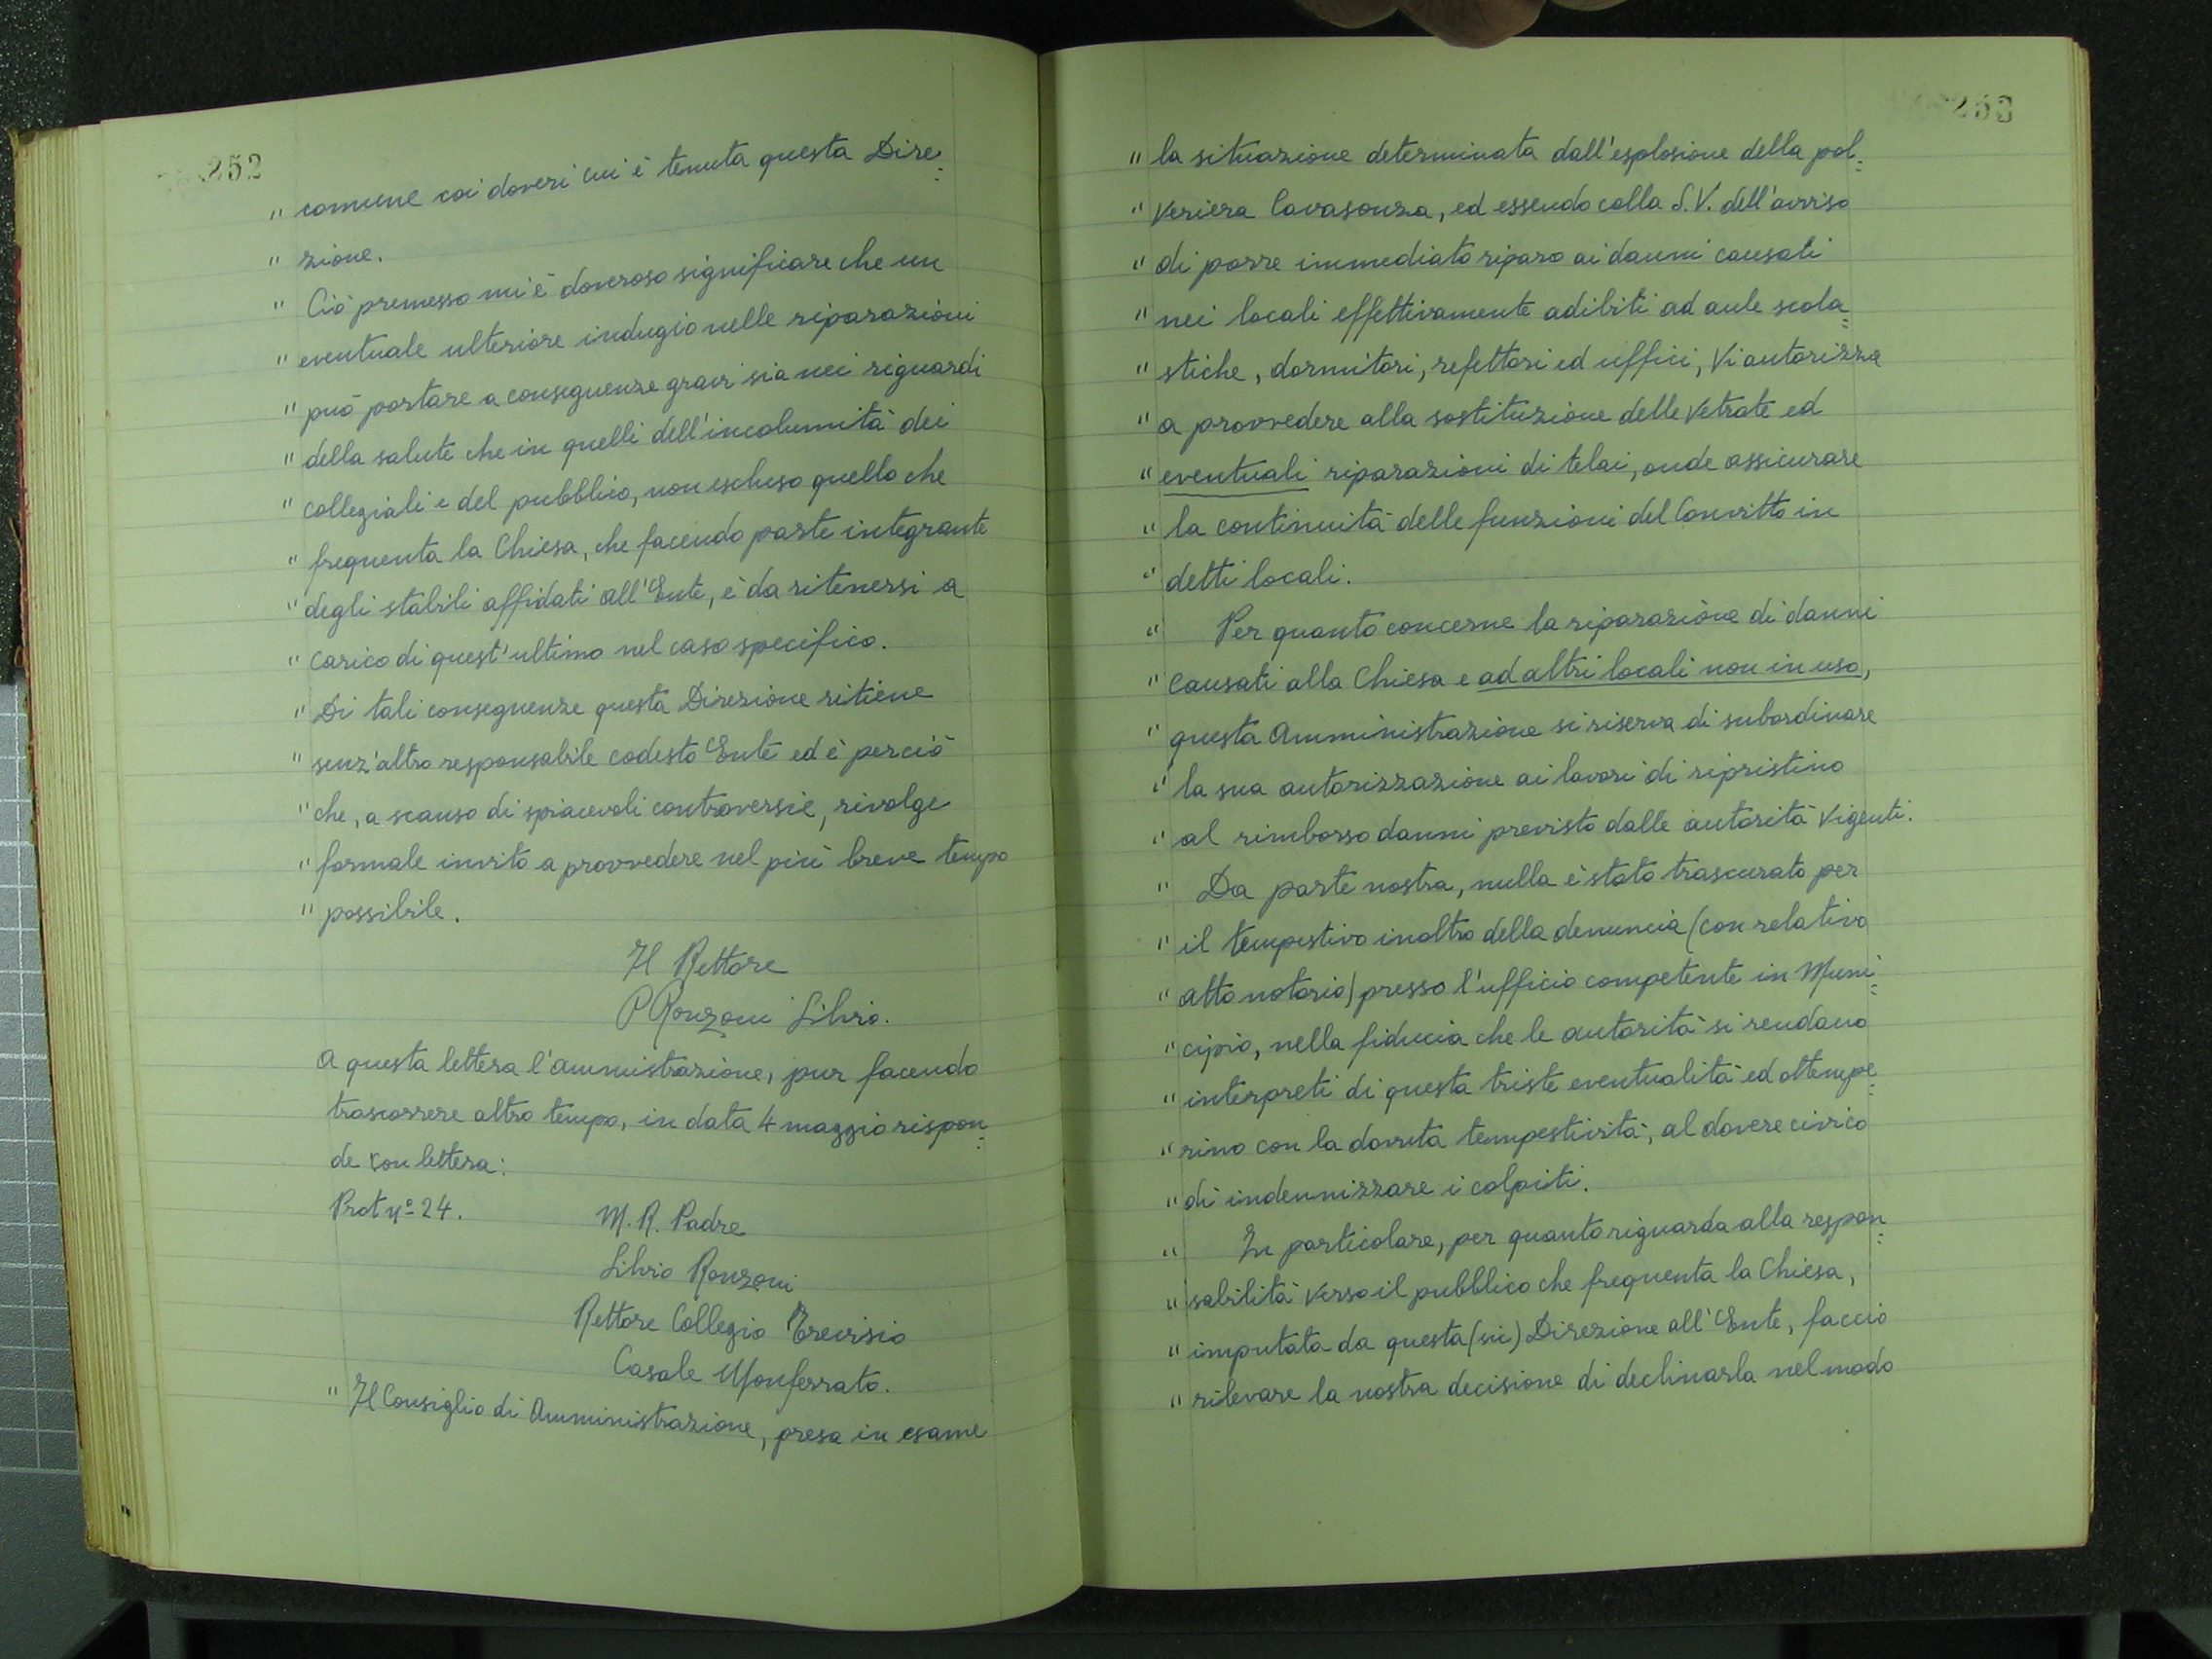 252
" comune coi doveri cui è tenuta questa Dire=
" zione.
" Ciò premesso mi è doveroso significare che un
" eventuale ulteriore indugio nelle riparazioni
" può portare a conseguenze gravi sia nei riguardi
" della salute che in quelli dell'incolumità dei
" collegiali e del pubblico, non escluso quello che
" frequenta la Chiesa, che facendo parte integrante
" degli stabili affidati all'Ente, è da ritenersi a
" carico di quest'ultimo nel caso specifico.
" Di tali conseguenze questa Direzione ritiene
" senz'altro responsabile codesto Ente ed è perciò
" che, a scanso di spiacevoli controversie, rivolge
" formale invito a provvedere nel più breve tempo
" possibile.
Il Rettore
P Ronzoni Silvio.
A questa lettera l'ammistrazione, pur facendo
trascorrere altro tempo, in data 4 maggio rispon=
de con lettera:
Prot nº 24.
M. R. Padre
Silvio Ronzoni
Rettore Collegio Trevisio
Casale Monferrato.
" Il Consiglio di Amministrazione, presa in esame
253
" la situazione determinata dall'esplosione della pol=
" veriera Cavasonza, ed essendo colla S.V. dell'avviso
" di porre immediato riparo ai danni causati
" nei locali effettivamente adibiti ad aule scola=
" stiche, dormitori, refettori ed uffici, Vi autorizza
" a provvedere alla sostituzione delle vetrate ed
" eventuali riparazioni di telai, onde assicurare
" la continuità delle funzioni del Convitto in
" detti locali.
" Per quanto concerne la riparazione di danni
" causati alla Chiesa e ad altri locali non in uso,
" questa Amministrazione si riserva di subordinare
" la sua autorizzazione ai lavori di ripristino
" al rimborso danni previsto dalle autorità vigenti.
" Da parte nostra, nulla è stato trascurato per
" il tempestivo inoltro della denuncia (con relativo
" atto notorio) presso l'ufficio competente in Muni=
" cipio, nella fiducia che le autorità si rendano
" interpreti di questa triste eventualità ed ottempe=
" rino con la dovuta tempestività, al dovere civico
" di indennizzare i colpiti.
" In particolare, per quanto riguarda alla respon=
" sabilità verso il pubblico che frequenta la Chiesa,
" imputata da questa (sic) Direzione all'Ente, faccio
" rilevare la nostra decisione di declinarla nel modo